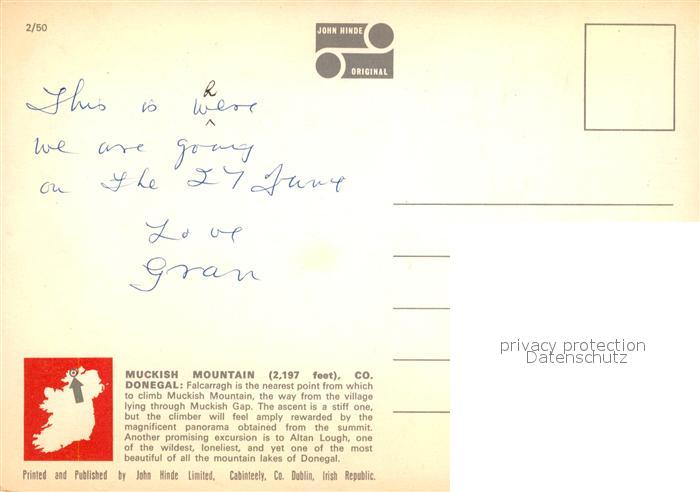 2/50
JOHN HINDE
ORIGINAL
This is where
we are going
on the 27 June
Love
Gran
privacy protection
Datenschutz
MUCKISH MOUNTAIN (2,197 feet), CO.
DONEGAL: Falcarragh is the nearest point from which
to climb Muckish Mountain, the way from the village
lying through Muckish Gap. The ascent is a stiff one,
but the climber will feel amply rewarded by the
magnificent panorama obtained from the summit.
Another promising excursion is to Altan Lough, one
of the wildest, loneliest, and yet one of the most
beautiful of all the mountain lakes of Donegal.
Printed and Published by John Hinde Limited, Cabinteely, Co. Dublin, Irish Republic.